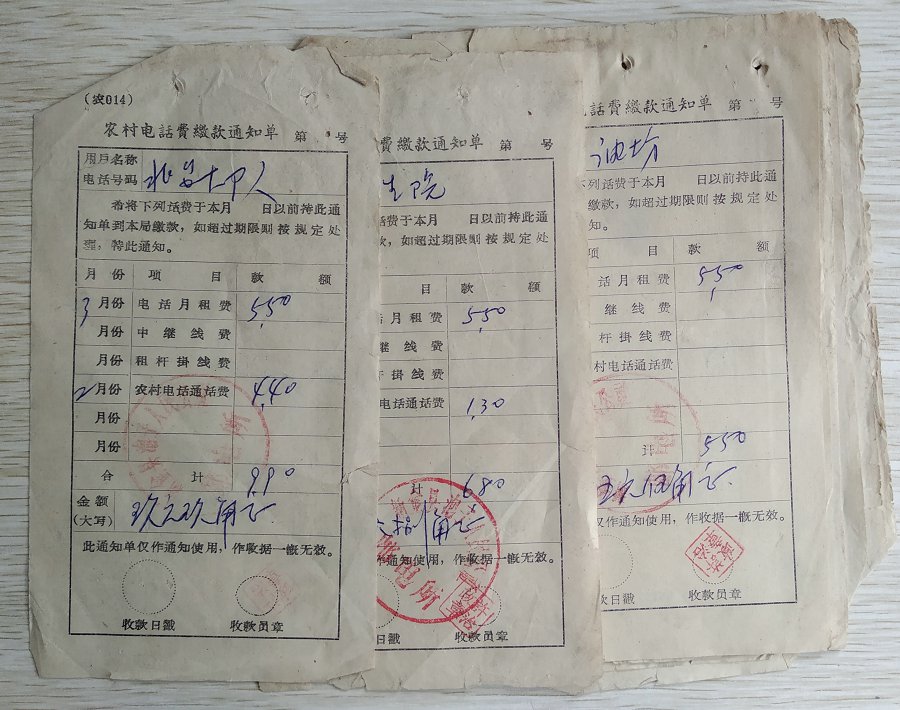 (农014)
农村电话費缴款通知单 第 号
用戶名称
电话号码
希将下列话费于本月 日以前持此通
知单到本局缴款，如超过期限则按规定处
理，特此通知。
月份 项目 款额
3月份 电话月租费 5.50
月份 中继线费
月份 租杆掛线费
2月份 农村电话通话费 4.40
月份
月份
合计 9.90
金额
(大写) 玖元玖角正
此通知单仅作通知使用，作收据一概无效。
收款日戳 收款员章
費缴款通知单 第 号
生院
话费于本月 日以前持此通
款，如超过期限则按规定处
通知。
目 款额
月租费 5.50
继线费
杆掛线费
电话通话费 1.30
计 6.80
元捌角正
作通知使用，作收据一概无效。
日戳 收款员章
話費缴款通知单 第 号
油坊
下列话费于本月 日以前持此通
缴款，如超过期限则按规定处
知。
项目 款额
话月租费 5.50
继线费
杆掛线费
村电话通话费
计 5.50
五元伍角正
仅作通知使用，作收据一概无效。
款日戳 收款员章